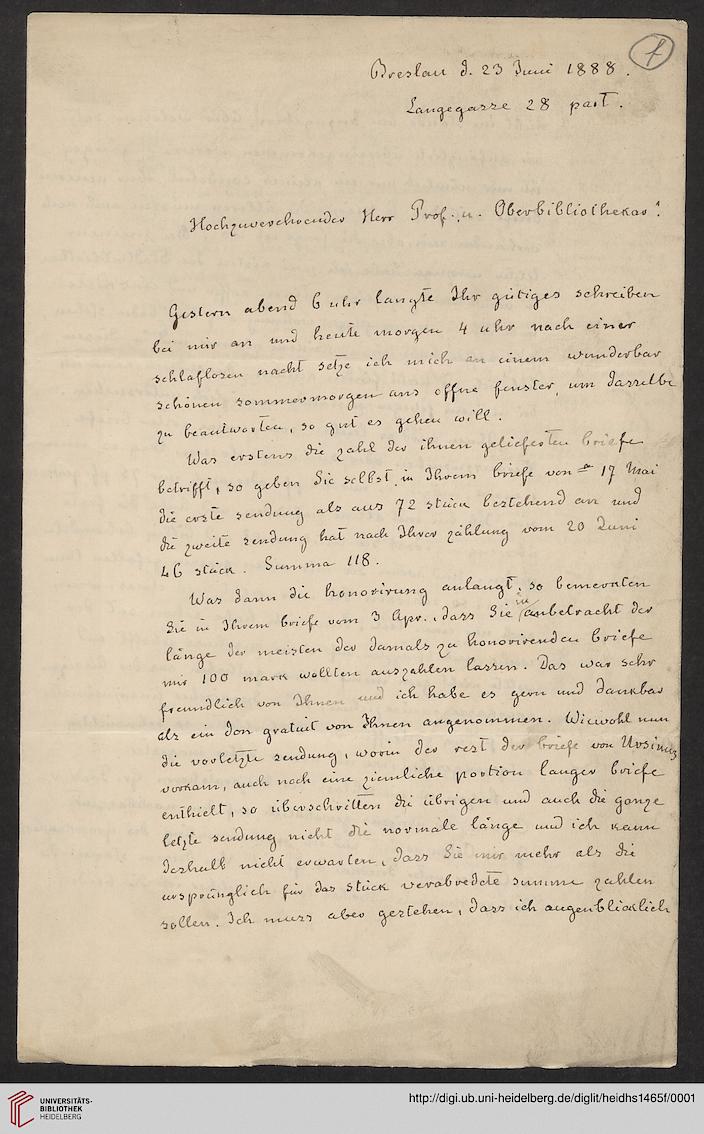 1
Breslau d. 23 Juni 1888.
Langegasse 28 part.
Hochzuverehrender Herr Prof. u. Oberbibliothekar!
Gestern abend 6 uhr langte Ihr gütiges schreiben
bei mir an und heute morgen 4 uhr nach einer
schlaflosen nacht setze ich mich an einem wunderbar
schönen sommermorgen ans offne fenster, um dasselbe
zu beantworten, so gut es gehen will.
Was erstens die zahl der ihnen gelieferten briefe
betrifft, so geben Sie selbst in Ihrem briefe von 17 Mai
die erste sendung als aus 72 stück bestehend an und
die zweite sendung hat nach Ihrer zählung vom 20 Juni
46 stück. Summa 118.
Was dann die honorirung anlangt, so bemerkten
Sie in Ihrem briefe vom 3 Apr., dass Sie in anbetracht der
länge der meisten der damals zu honorirenden briefe
mir 100 mark wollten auszahlen lassen. Das war sehr
freundlich von Ihnen und ich habe es gern und dankbar
als ein don gratuit von Ihnen angenommen. Wiewohl nun
die vorletzte sendung, worin der rest der briefe von Ursinus
vorkam, auch noch eine ziemliche portion langer briefe
enthielt, so überschritten die übrigen und auch die ganze
letzte sendung nicht die normale länge und ich kann
deshalb nicht erwarten, dass Sie mir mehr als die
ursprünglich für das stück verabredete summe zahlen
sollen. Ich muss aber gestehen, dass ich augenblicklich
UNIVERSITÄTS-
BIBLIOTHEK
HEIDELBERG
http://digi.ub.uni-heidelberg.de/diglit/heidhs1465f/0001